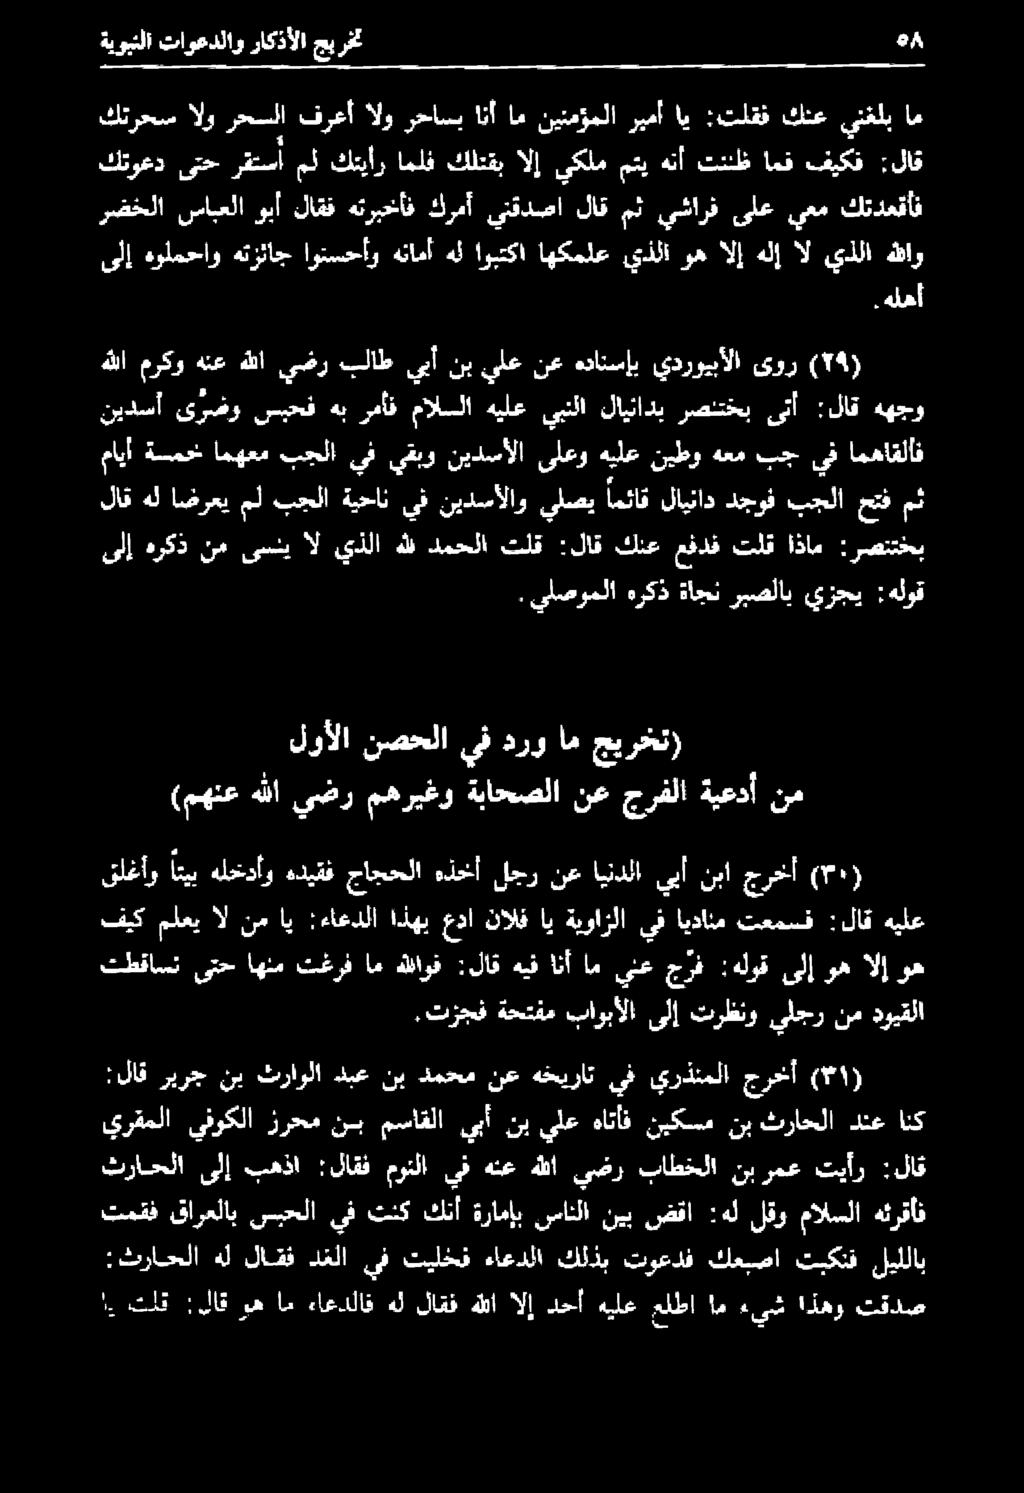 ٥٨
تخريج الأذكار والدعوات النبوية
ما بلغني عنك فقلت: يا أمير المؤمنين ما أنا بساحر ولا أعرف السحر ولا سحرتك
قال: فكيف فما ظننت أنه يتم ملكي إلا بقتلك فلما رأيتك لم أستقر حتى دعوتك
فأقعدتك معي على فراشي ثم قال اصدقني أمرك فأخبرته فقال أبو العباس الخضر
والله الذي لا إله إلا هو الذي علمكها اكتبوا له أمانه وأحسنوا جائزته واحملوه إلى
أهله.
(٢٩) روى الأبيوردي بإسناده عن علي بن أبي طالب رضي الله عنه وكرم الله
وجهه قال: أتى بختنصر بدانيال النبي عليه السلام فأمر به فحبس وضرّى أسدين
فألقاهما في جب معه وطين عليه وعلى الأسدين وبقي في الجب معهما خمسة أيام
ثم فتح الجب فوجد دانيال قائماً يصلي والأسدين في ناحية الجب لم يعرضا له قال
بختنصر: ماذا قلت فدفع عنك قال: قلت الحمد لله الذي لا ينسى من ذكره إلى
قوله: يجزي بالصبر نجاة ذكره الموصلي.
(تخريج ما ورد في الحصن الأول
من أدعية الفرج عن الصحابة وغيرهم رضي الله عنهم)
(٣٠) أخرج ابن أبي الدنيا عن رجل أخذه الحجاج فقيده وأدخله بيتاً وأغلق
عليه قال: فسمعت مناديا في الزاوية يا فلان ادع بهذا الدعاء: يا من لا يعلم كيف
هو إلا هو إلى قوله: فرّج عني ما أنا فيه قال: فوالله ما فرغت منها حتى تساقطت
القيود من رجلي ونظرت إلى الأبواب مفتحة فجزت.
(٣١) أخرج المنذري في تاريخه عن محمد بن عبد الوارث بن جرير قال:
كنا عند الحارث بن مسكين فأتاه علي بن أبي القاسم بن محرز الكوفي المقري
قال: رأيت عمر بن الخطاب رضي الله عنه في النوم فقال: اذهب إلى الحارث
فأقرئه السلام وقل له: اقض بين الناس بإمارة أنك كنت في الحبس بالعراق فقمت
بالليل فنكبت اصبعك فدعوت بذلك الدعاء فخليت في الغد فقال له الحارث:
صدقت وهذا شيء ما اطلع عليه أحد إلا الله فقال له فالدعاء ما هو قال: قلت يا